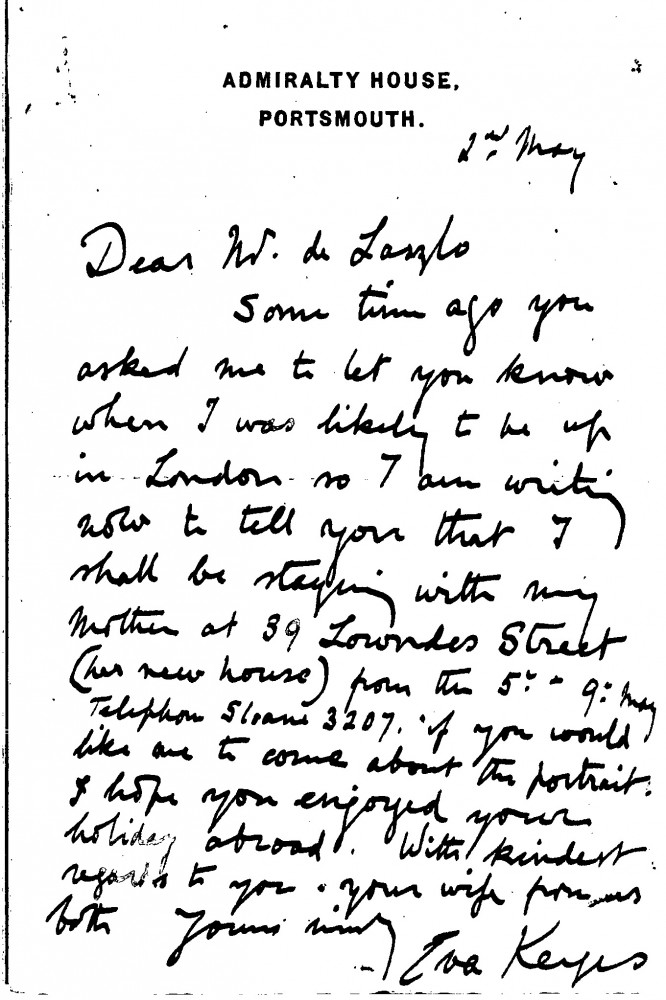 ADMIRALTY HOUSE,
PORTSMOUTH.
2nd May
Dear Mr. de Laszlo
Some time ago you
asked me to let you know
when I was likely to be up
in London so I am writing
now to tell you that I
shall be staying with my
Mother at 39 Lowndes Street
(her new house) from the 5th - 9th May
Telephone Sloane 3207. if you would
like me to come about the portrait.
I hope you enjoyed your
holiday abroad. With kindest
regards to you & your wife from us
both Yours sincerely
Eva Keyes